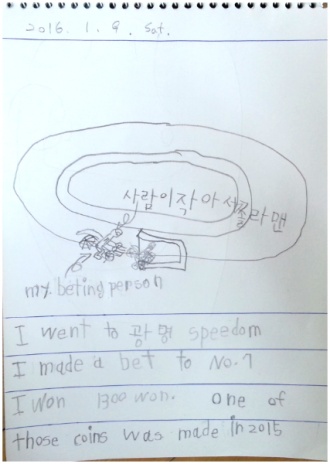 2016. 1. 9. Sat.
사람이작아서졸라맨
my. beting person
I went to 광명 speedom
I made a bet to No.7
I won 1300 won. one of
those coins was made in 2015